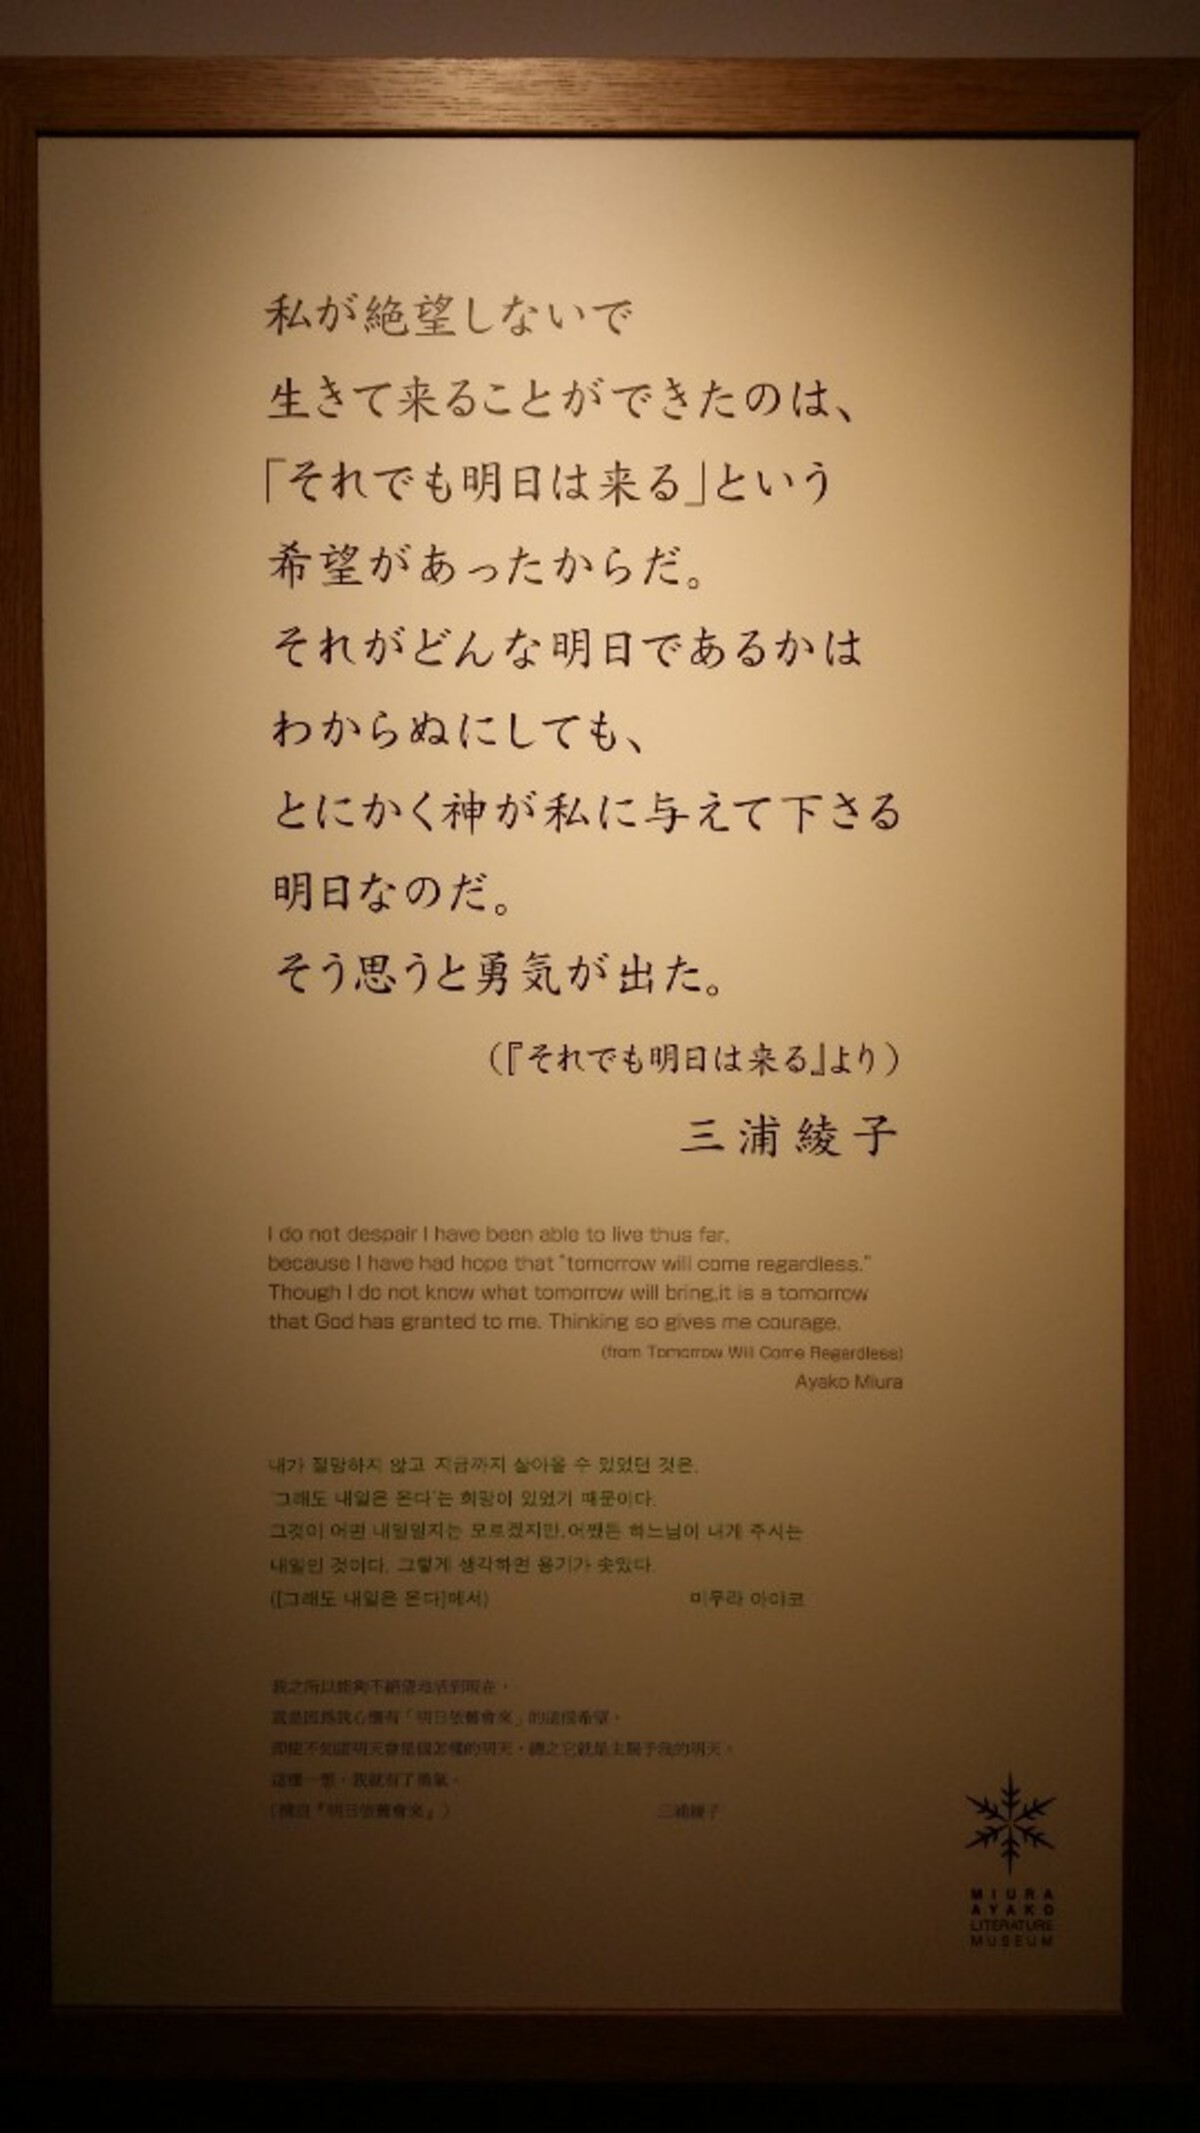 私が絶望しないで
生きて来ることができたのは、
「それでも明日は来る」という
希望があったからだ。
それがどんな明日であるかは
わからぬにしても、
とにかく神が私に与えて下さる
明日なのだ。
そう思うと勇気が出た。
(『それでも明日は来る』より)
三浦綾子
I do not despair I have been able to live thus far,
because I have had hope that "tomorrow will come regardless."
Though I do not know what tomorrow will bring,it is a tomorrow
that God has granted to me. Thinking so gives me courage.
(from Tomorrow Will Come Regardless)
Ayako Miura
내가 절망하지 않고 지금까지 살아올 수 있었던 것은,
'그래도 내일은 온다'는 희망이 있었기 때문이다.
그것이 어떤 내일일지는 모르겠지만,어쨌든 하느님이 내게 주시는
내일인 것이다. 그렇게 생각하면 용기가 솟았다.
([그래도 내일은 온다]에서) 미우라 아야코
我之所以能夠不絕望地活到現在，
就是因為我心懷有「明日依舊會來」的這份希望。
即使不知道明天會是個怎樣的明天，總之它就是主賜予我的明天。
這樣一想，我就有了勇氣。
(摘自『明日依舊會來』) 三浦綾子
MIURA
AYAKO
LITERATURE
MUSEUM